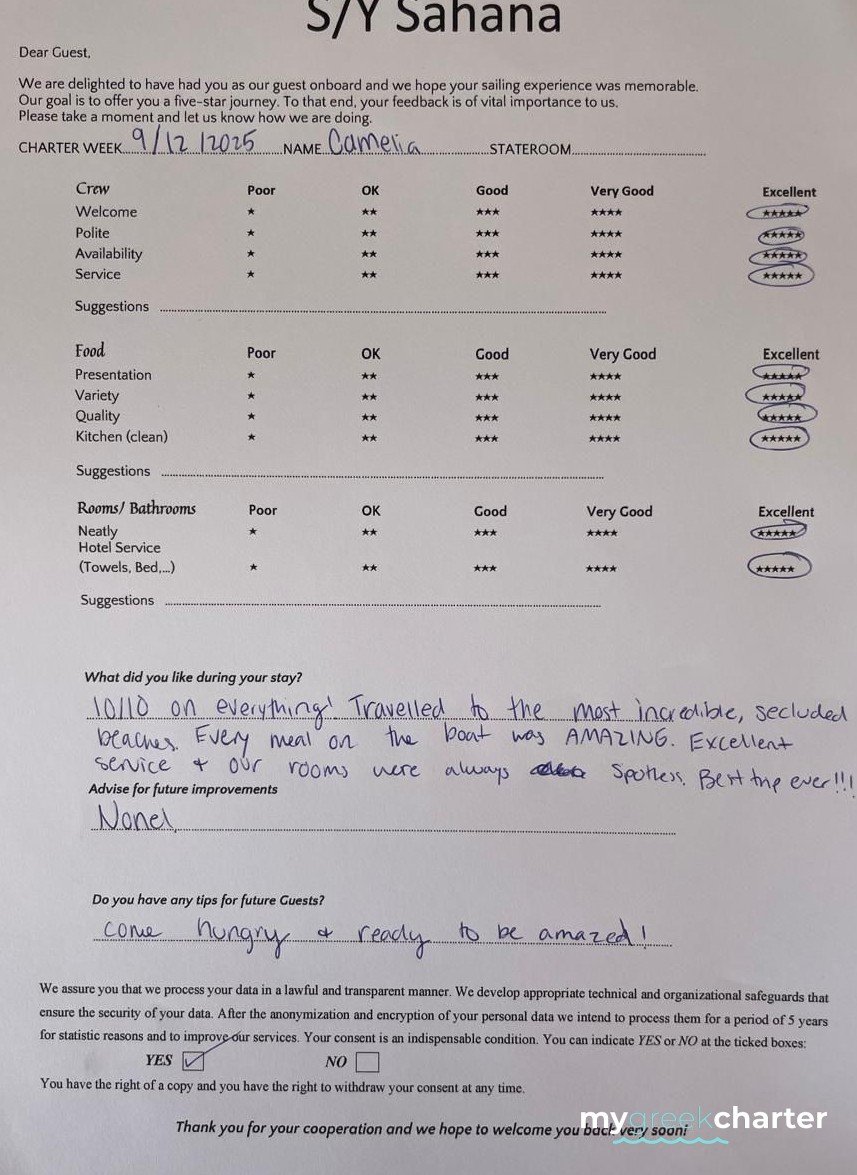 S/Y Sahana
Dear Guest,
We are delighted to have had you as our guest onboard and we hope your sailing experience was memorable.
Our goal is to offer you a five-star journey. To that end, your feedback is of vital importance to us.
Please take a moment and let us know how we are doing.
CHARTER WEEK 9/12/2025 NAME Camelia STATEROOM
Crew Poor OK Good Very Good Excellent
Welcome ★ ★★ ★★★ ★★★★ ★★★★★
Polite ★ ★★ ★★★ ★★★★ ★★★★★
Availability ★ ★★ ★★★ ★★★★ ★★★★★
Service ★ ★★ ★★★ ★★★★ ★★★★★
Suggestions
Food Poor OK Good Very Good Excellent
Presentation ★ ★★ ★★★ ★★★★ ★★★★★
Variety ★ ★★ ★★★ ★★★★ ★★★★★
Quality ★ ★★ ★★★ ★★★★ ★★★★★
Kitchen (clean) ★ ★★ ★★★ ★★★★ ★★★★★
Suggestions
Rooms/ Bathrooms Poor OK Good Very Good Excellent
Neatly ★ ★★ ★★★ ★★★★ ★★★★★
Hotel Service
(Towels, Bed,...) ★ ★★ ★★★ ★★★★ ★★★★★
Suggestions
What did you like during your stay?
10/10 on everything! Travelled to the most incredible, secluded
beaches. Every meal on the boat was AMAZING. Excellent
service + our rooms were always spotless. Best trip ever!!!
Advise for future improvements
None!
Do you have any tips for future Guests?
come hungry + ready to be amazed!
We assure you that we process your data in a lawful and transparent manner. We develop appropriate technical and organizational safeguards that
ensure the security of your data. After the anonymization and encryption of your personal data we intend to process them for a period of 5 years
for statistic reasons and to improve our services. Your consent is an indispensable condition. You can indicate YES or NO at the ticked boxes:
YES NO
You have the right of a copy and you have the right to withdraw your consent at any time.
mygreekcharter
Thank you for your cooperation and we hope to welcome you back very soon!